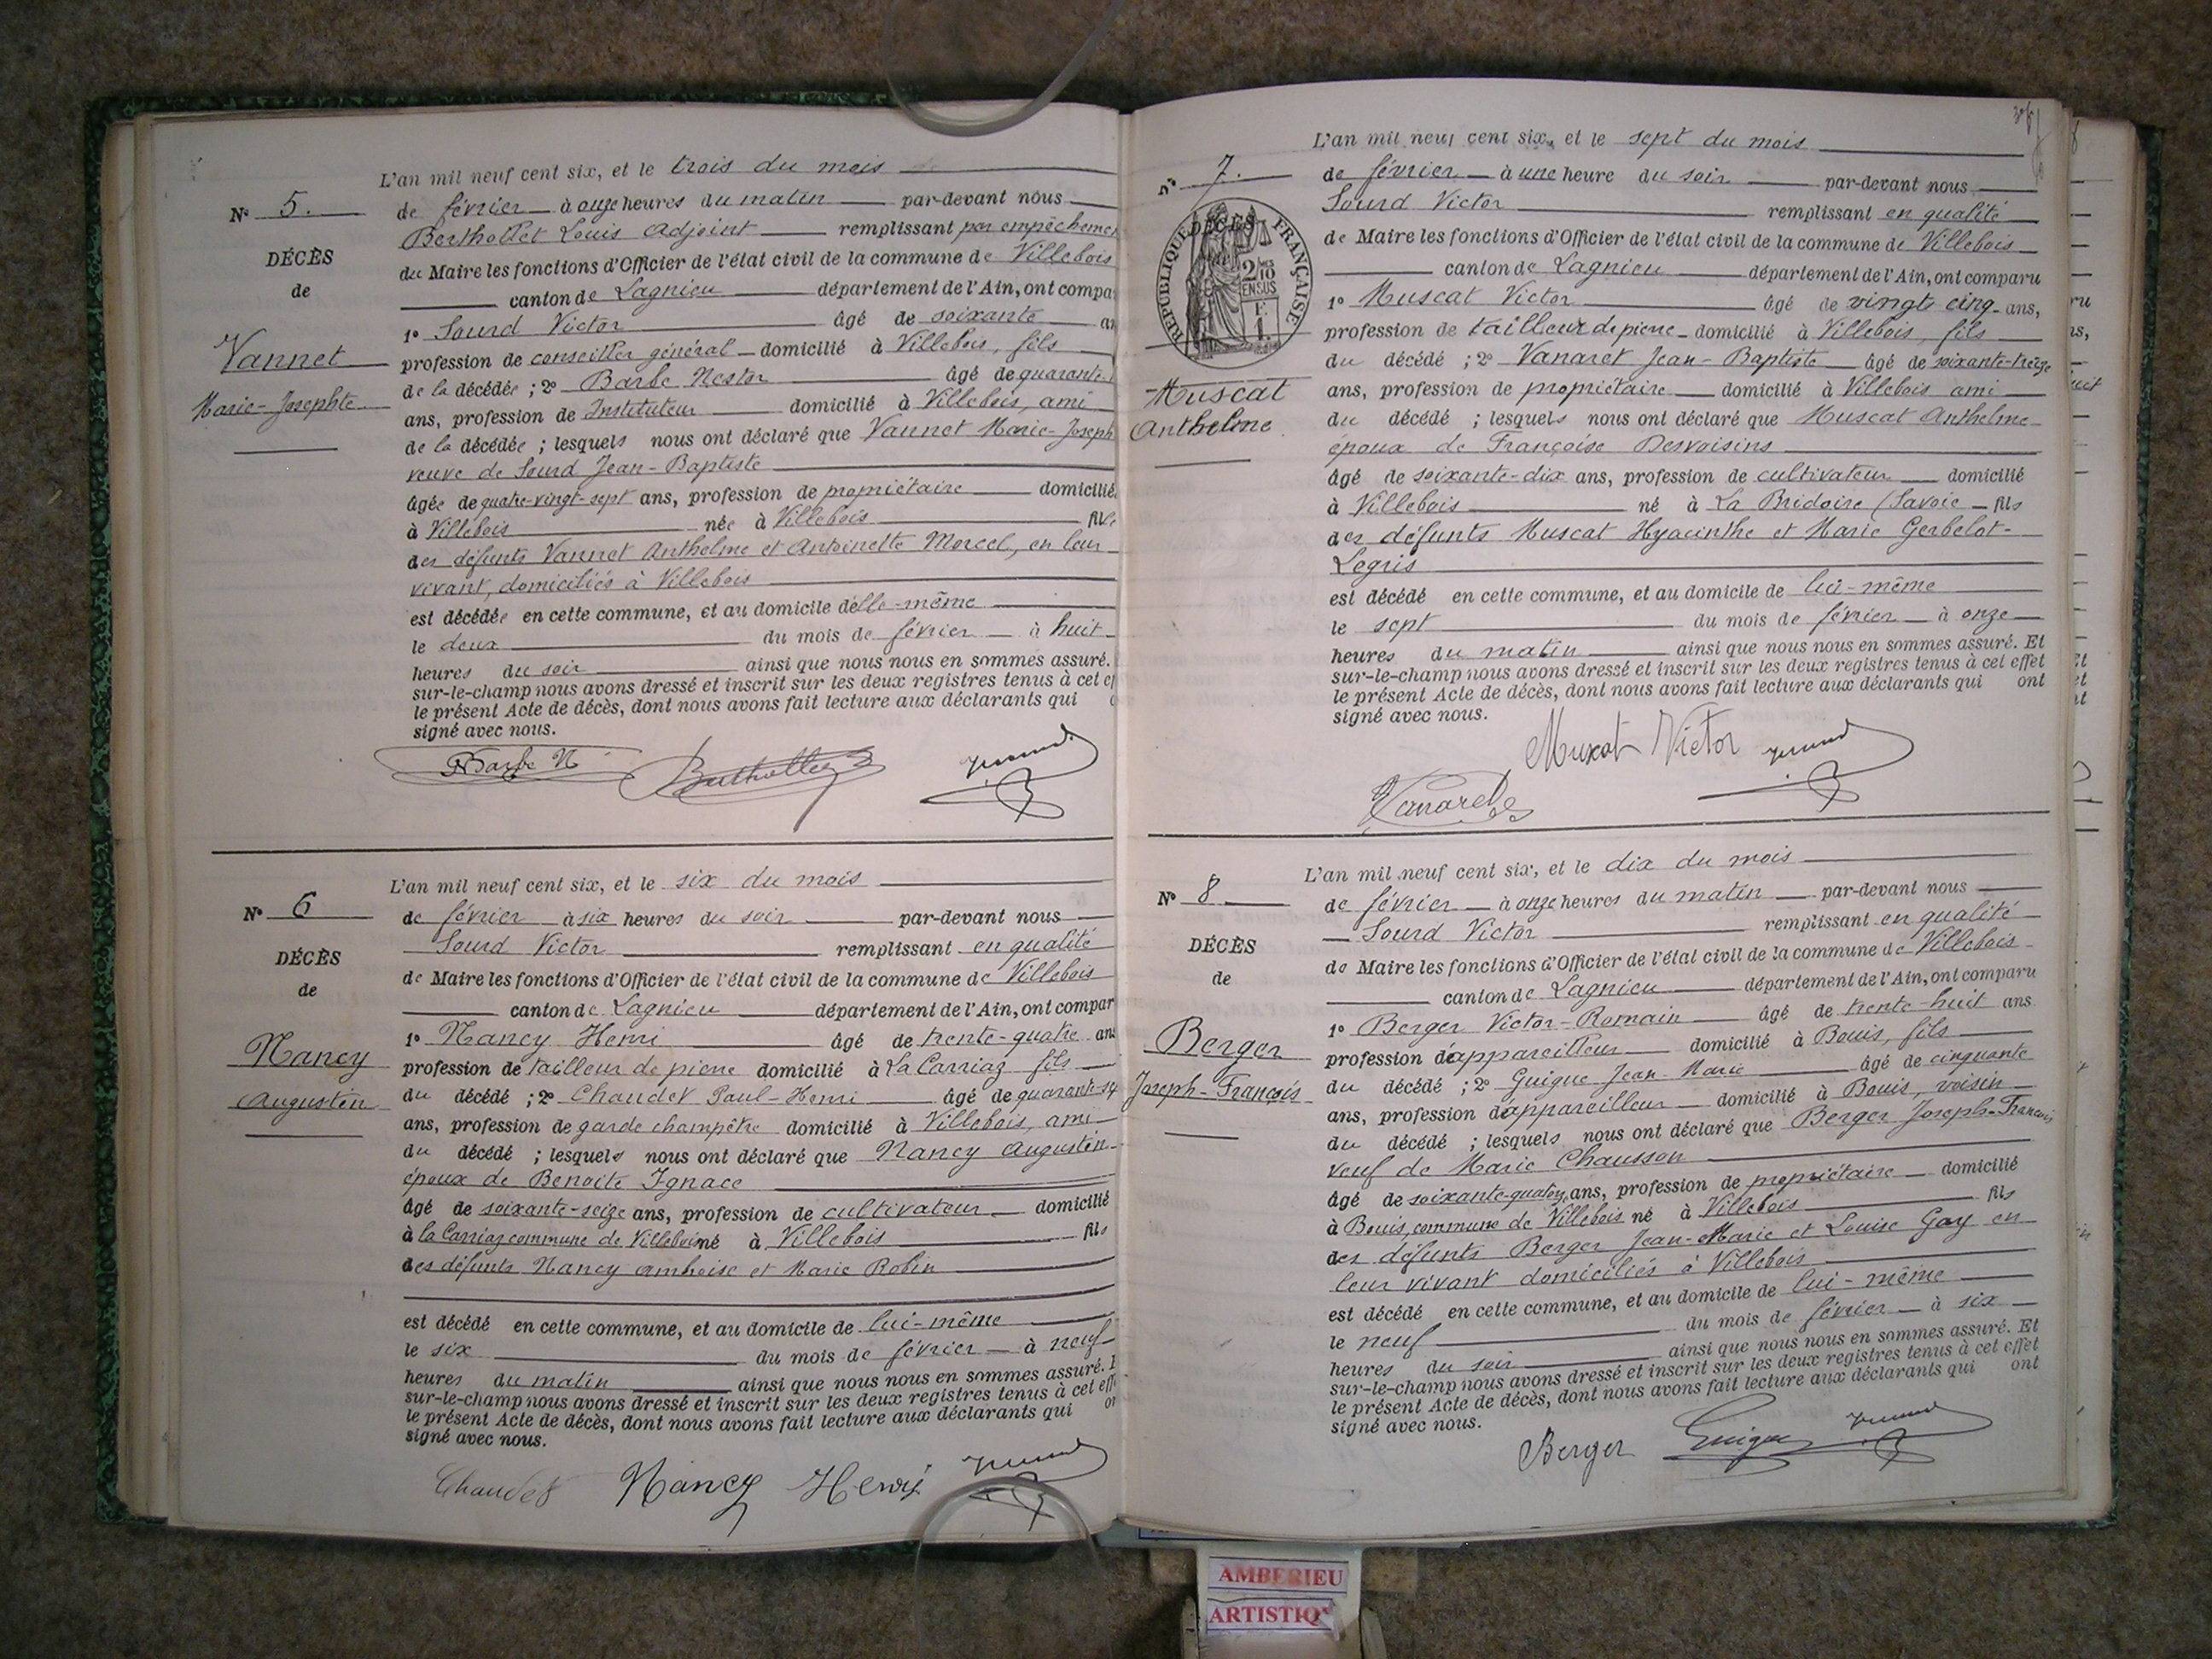 L'an mil neuf cent six, et le trois du mois
N° 5.
de février à onze heures du matin par-devant nous
Berthollet Louis Adjoint remplissant par empêchemen
DÉCÈS
du Maire les fonctions d'Officier de l'état civil de la commune de Villebois
de
canton de Lagnieu département de l'Ain, ont compa
1° Sourd Victor âgé de soixante an
Vannet
profession de conseiller général domicilié à Villebois, fils
Marie-Josephte
de la décédée ; 2° Barbe Nestor âgé de quarante
ans, profession de Instituteur domicilié à Villebois, ami
de la décédée ; lesquels nous ont déclaré que Vannet Marie-Joseph
veuve de Sourd Jean-Baptiste
âgée de quatre-vingt-sept ans, profession de propriétaire domicilié
à Villebois née à Villebois fille
des défunts Vannet Anthelme et Antoinette Morcel, en leur
vivant, domiciliés à Villebois
est décédée en cette commune, et au domicile d'elle-même
le deux du mois de février à huit
heures du soir ainsi que nous nous en sommes assuré.
sur-le-champ nous avons dressé et inscrit sur les deux registres tenus à cet ef
le présent Acte de décès, dont nous avons fait lecture aux déclarants qui
signé avec nous.
Barbe N Berthollet
L'an mil neuf cent six, et le six du mois
N° 6
de février à six heures du soir par-devant nous
Sourd Victor remplissant en qualité
DÉCÈS
de Maire les fonctions d'Officier de l'état civil de la commune de Villebois
de
canton de Lagnieu département de l'Ain, ont compar
1° Nancy Henri âgé de trente-quatre ans
Nancy
profession de tailleur de pierre domicilié à La Carriaz fils
Augustin
du décédé ; 2° Chaudet Paul-Henri âgé de quarante-
ans, profession de garde champêtre domicilié à Villebois, ami
du décédé ; lesquels nous ont déclaré que Nancy Augustin
époux de Benoite Ignace
âgé de soixante-seize ans, profession de cultivateur domicilié
à la Carriaz commune de Villebois né à Villebois fils
des défunts Nancy Ambroise et Marie Robin
est décédé en cette commune, et au domicile de lui-même
le six du mois de février à neuf
heures du matin ainsi que nous nous en sommes assuré. E
sur-le-champ nous avons dressé et inscrit sur les deux registres tenus à cet effe
le présent Acte de décès, dont nous avons fait lecture aux déclarants qui on
signé avec nous.
Chaudet Nancy Henri
L'an mil neuf cent six, et le sept du mois
N° 7.
de février à une heure du soir par-devant nous
Sourd Victor remplissant en qualité
DÉCÈS
de
RÉPUBLIQUE FRANÇAISE
2/10 EN SUS
1 F.
de Maire les fonctions d'Officier de l'état civil de la commune de Villebois
canton de Lagnieu département de l'Ain, ont comparu
1° Muscat Victor âgé de vingt cinq ans,
profession de tailleur de pierre domicilié à Villebois, fils
Muscat
Anthelme
du décédé ; 2° Vanaret Jean-Baptiste âgé de soixante-treize
ans, profession de propriétaire domicilié à Villebois ami
du décédé ; lesquels nous ont déclaré que Muscat Anthelme
époux de Françoise Desvoisins
âgé de soixante-dix ans, profession de cultivateur domicilié
à Villebois né à La Bridoire (Savoie fils
des défunts Muscat Hyacinthe et Marie Gerbelot-
Legris
est décédé en cette commune, et au domicile de lui-même
le sept du mois de février à onze
heures du matin ainsi que nous nous en sommes assuré. Et
sur-le-champ nous avons dressé et inscrit sur les deux registres tenus à cet effet
le présent Acte de décès, dont nous avons fait lecture aux déclarants qui ont
signé avec nous.
Muxat Victor
Vanaret
L'an mil neuf cent six, et le dix du mois
N° 8
de février à onze heures du matin par-devant nous
Sourd Victor remplissant en qualité
DÉCÈS
de Maire les fonctions d'Officier de l'état civil de la commune de Villebois
de
canton de Lagnieu département de l'Ain, ont comparu
1° Berger Victor-Romain âgé de trente-huit ans
Berger
profession d'appareilleur domicilié à Bouis, fils
Joseph-François
du décédé ; 2° Guigue Jean-Marie âgé de cinquante
ans, profession d'appareilleur domicilié à Bouis, voisin
du décédé ; lesquels nous ont déclaré que Berger Joseph-François
veuf de Marie Chausson
âgé de soixante-quatorze ans, profession de propriétaire domicilié
à Bouis, commune de Villebois né à Villebois fils
des défunts Berger Jean-Marie et Louise Gay en
leur vivant domiciliés à Villebois
est décédé en cette commune, et au domicile de lui-même
le neuf du mois de février à six
heures du soir ainsi que nous nous en sommes assuré. Et
sur-le-champ nous avons dressé et inscrit sur les deux registres tenus à cet effet
le présent Acte de décès, dont nous avons fait lecture aux déclarants qui ont
signé avec nous.
Berger Guigue
AMBERIEU
ARTISTIQ